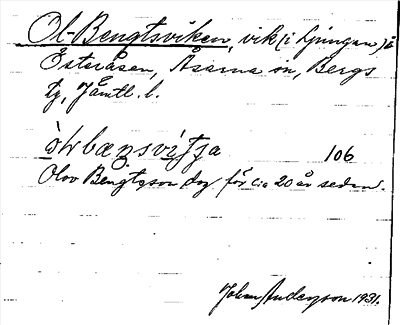 Ol-Bengtsviken, vik (i Ljungan) å
Österåsen, Åsarna sn, Bergs
tg, Jämtl. l.
106
Olov Bengtsson dog för c:a 20 år sedan.
Johan Anderson 1931.